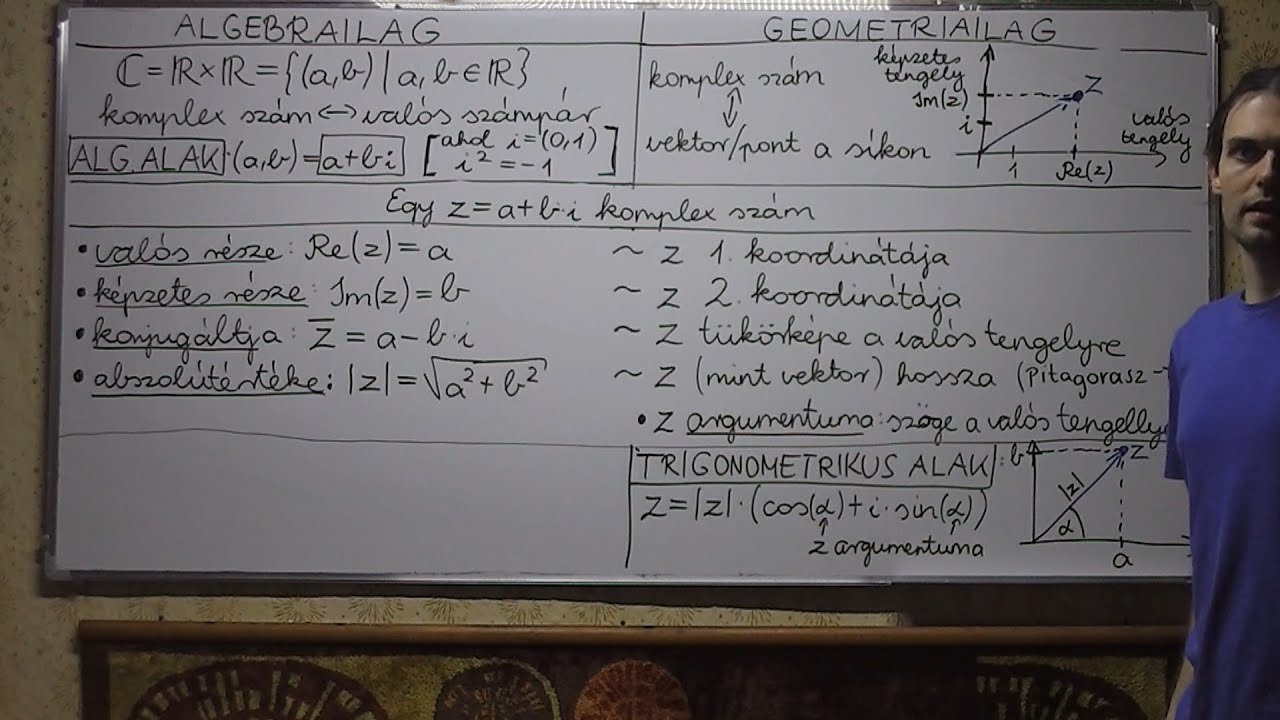 ALGEBRAILAG
ℂ=ℝ×ℝ={(a,b) | a,b∈ℝ}
komplex szám↔valós számpár
ALG. ALAK: (a,b)=a+b·i [ahol i=(0,1)
i²=-1]
GEOMETRIAILAG
komplex szám
↕
vektor/pont a síkon
képzetes
tengely
Im(z)
i
z
valós
tengely
1 Re(z)
Egy z=a+b·i komplex szám
• valós része: Re(z)=a ~ z 1. koordinátája
• képzetes része: Im(z)=b ~ z 2. koordinátája
• konjugáltja: z̅=a-b·i ~ z tükörképe a valós tengelyre
• abszolútértéke: |z|=√(a²+b²) ~ z (mint vektor) hossza (Pitagorasz-
• z argumentuma: szöge a valós tengellye
TRIGONOMETRIKUS ALAK:
z=|z|·(cos(α)+i·sin(α))
↑ ↑
z argumentuma
b z
|z|
α
a